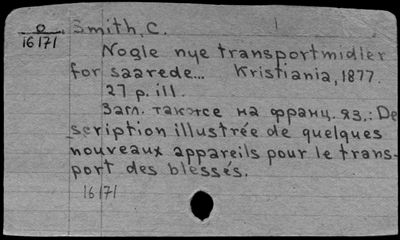 0
16171
Smith, C.
Nogle nye transportmidler
for saarede... Kristiania, 1877.
27 p. ill.
Загл. также на франц. яз.: De
scription illustrée de quelques
nouveaux appareils pour le trans-
port des blessés.
16171